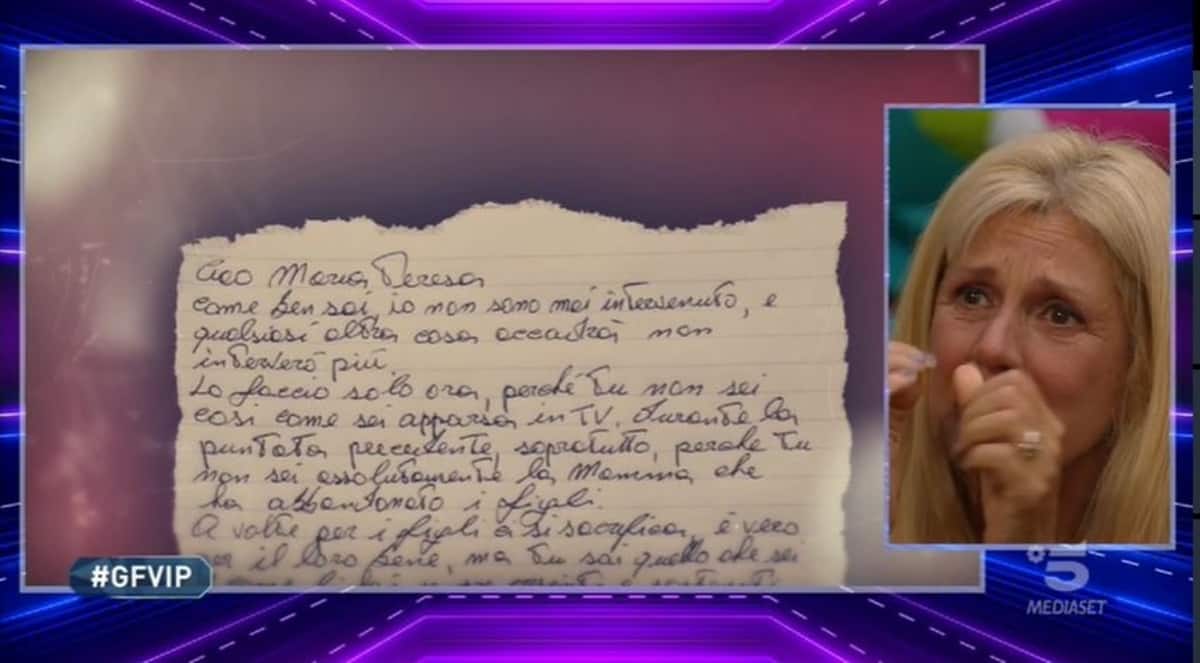 Ciao Maria Teresa
come ben sai, io non sono mai intervenuto, e
qualsiasi altra cosa accadrà non
interverrò più.
Lo faccio solo ora, perché tu non sei
così come sei apparsa in TV. durante la
puntata precedente, sopratutto, perche tu
non sei assolutamente la Mamma che
ha abbandonato i figli.
A volte per i figli ci si sacrifica, è vero
per il loro bene, ma tu sai quello che sei
#GFVIP
5
MEDIASET